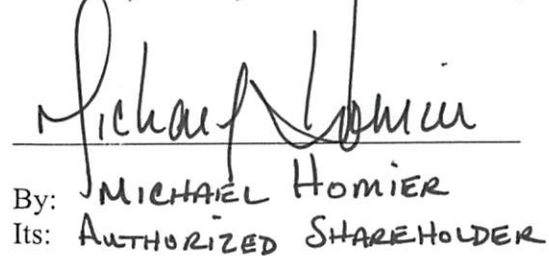 Michael Homier
By: MICHAEL HOMIER
Its: AUTHORIZED SHAREHOLDER